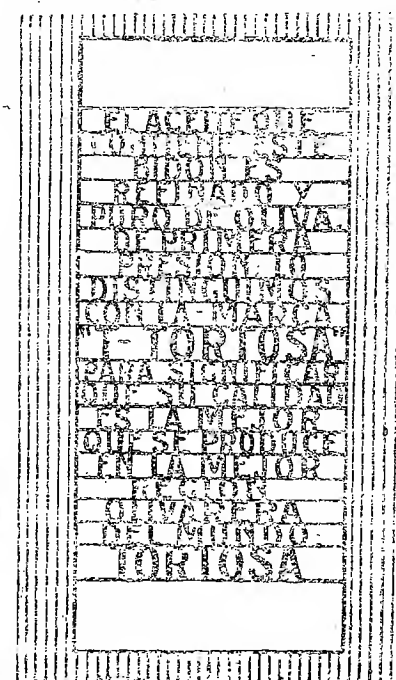 EL ACEITE QUE
CONTIENE ESTE
BIDON ES
REFINADO Y
PURO DE OLIVA
DE PRIMERA
PRESION. LO
DISTINGUIMOS
CON LA MARCA
"1-TORTOSA"
PARA SIGNIFICAR
QUE SU CALIDAD
ES LA MEJOR
QUE SE PRODUCE
EN LA MEJOR
REGION
OLIVARERA
DEL MUNDO.
TORTOSA